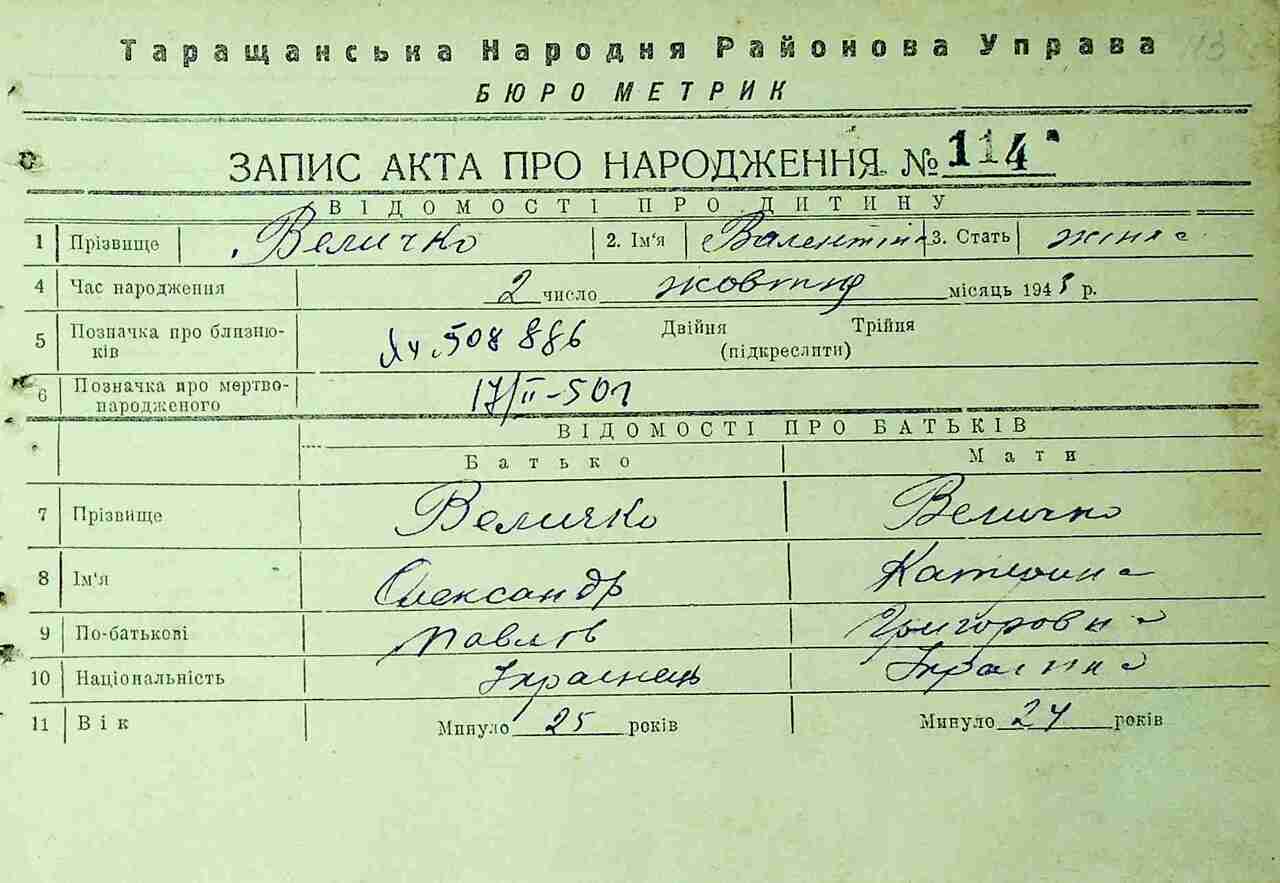 Таращанська Народня Районова Управа
БЮРО МЕТРИК
ЗАПИС АКТА ПРО НАРОДЖЕННЯ №114
ВІДОМОСТІ ПРО ДИТИНУ
1 Прізвище Величко 2. Ім'я Валентина 3. Стать жіноча
4 Час народження 2 число жовтня місяць 194 р.
5 Позначка про близнюків 508886 Двійня Трійня (підкреслити)
6 Позначка про мертвонародженого 17/II-50
ВІДОМОСТІ ПРО БАТЬКІВ
Батько Мати
7 Прізвище Величко Величко
8 Ім'я Олександр Катерина
9 По-батькові Павлов Григоровна
10 Національність Українець Українка
11 Вік Минуло 25 років Минуло 24 років